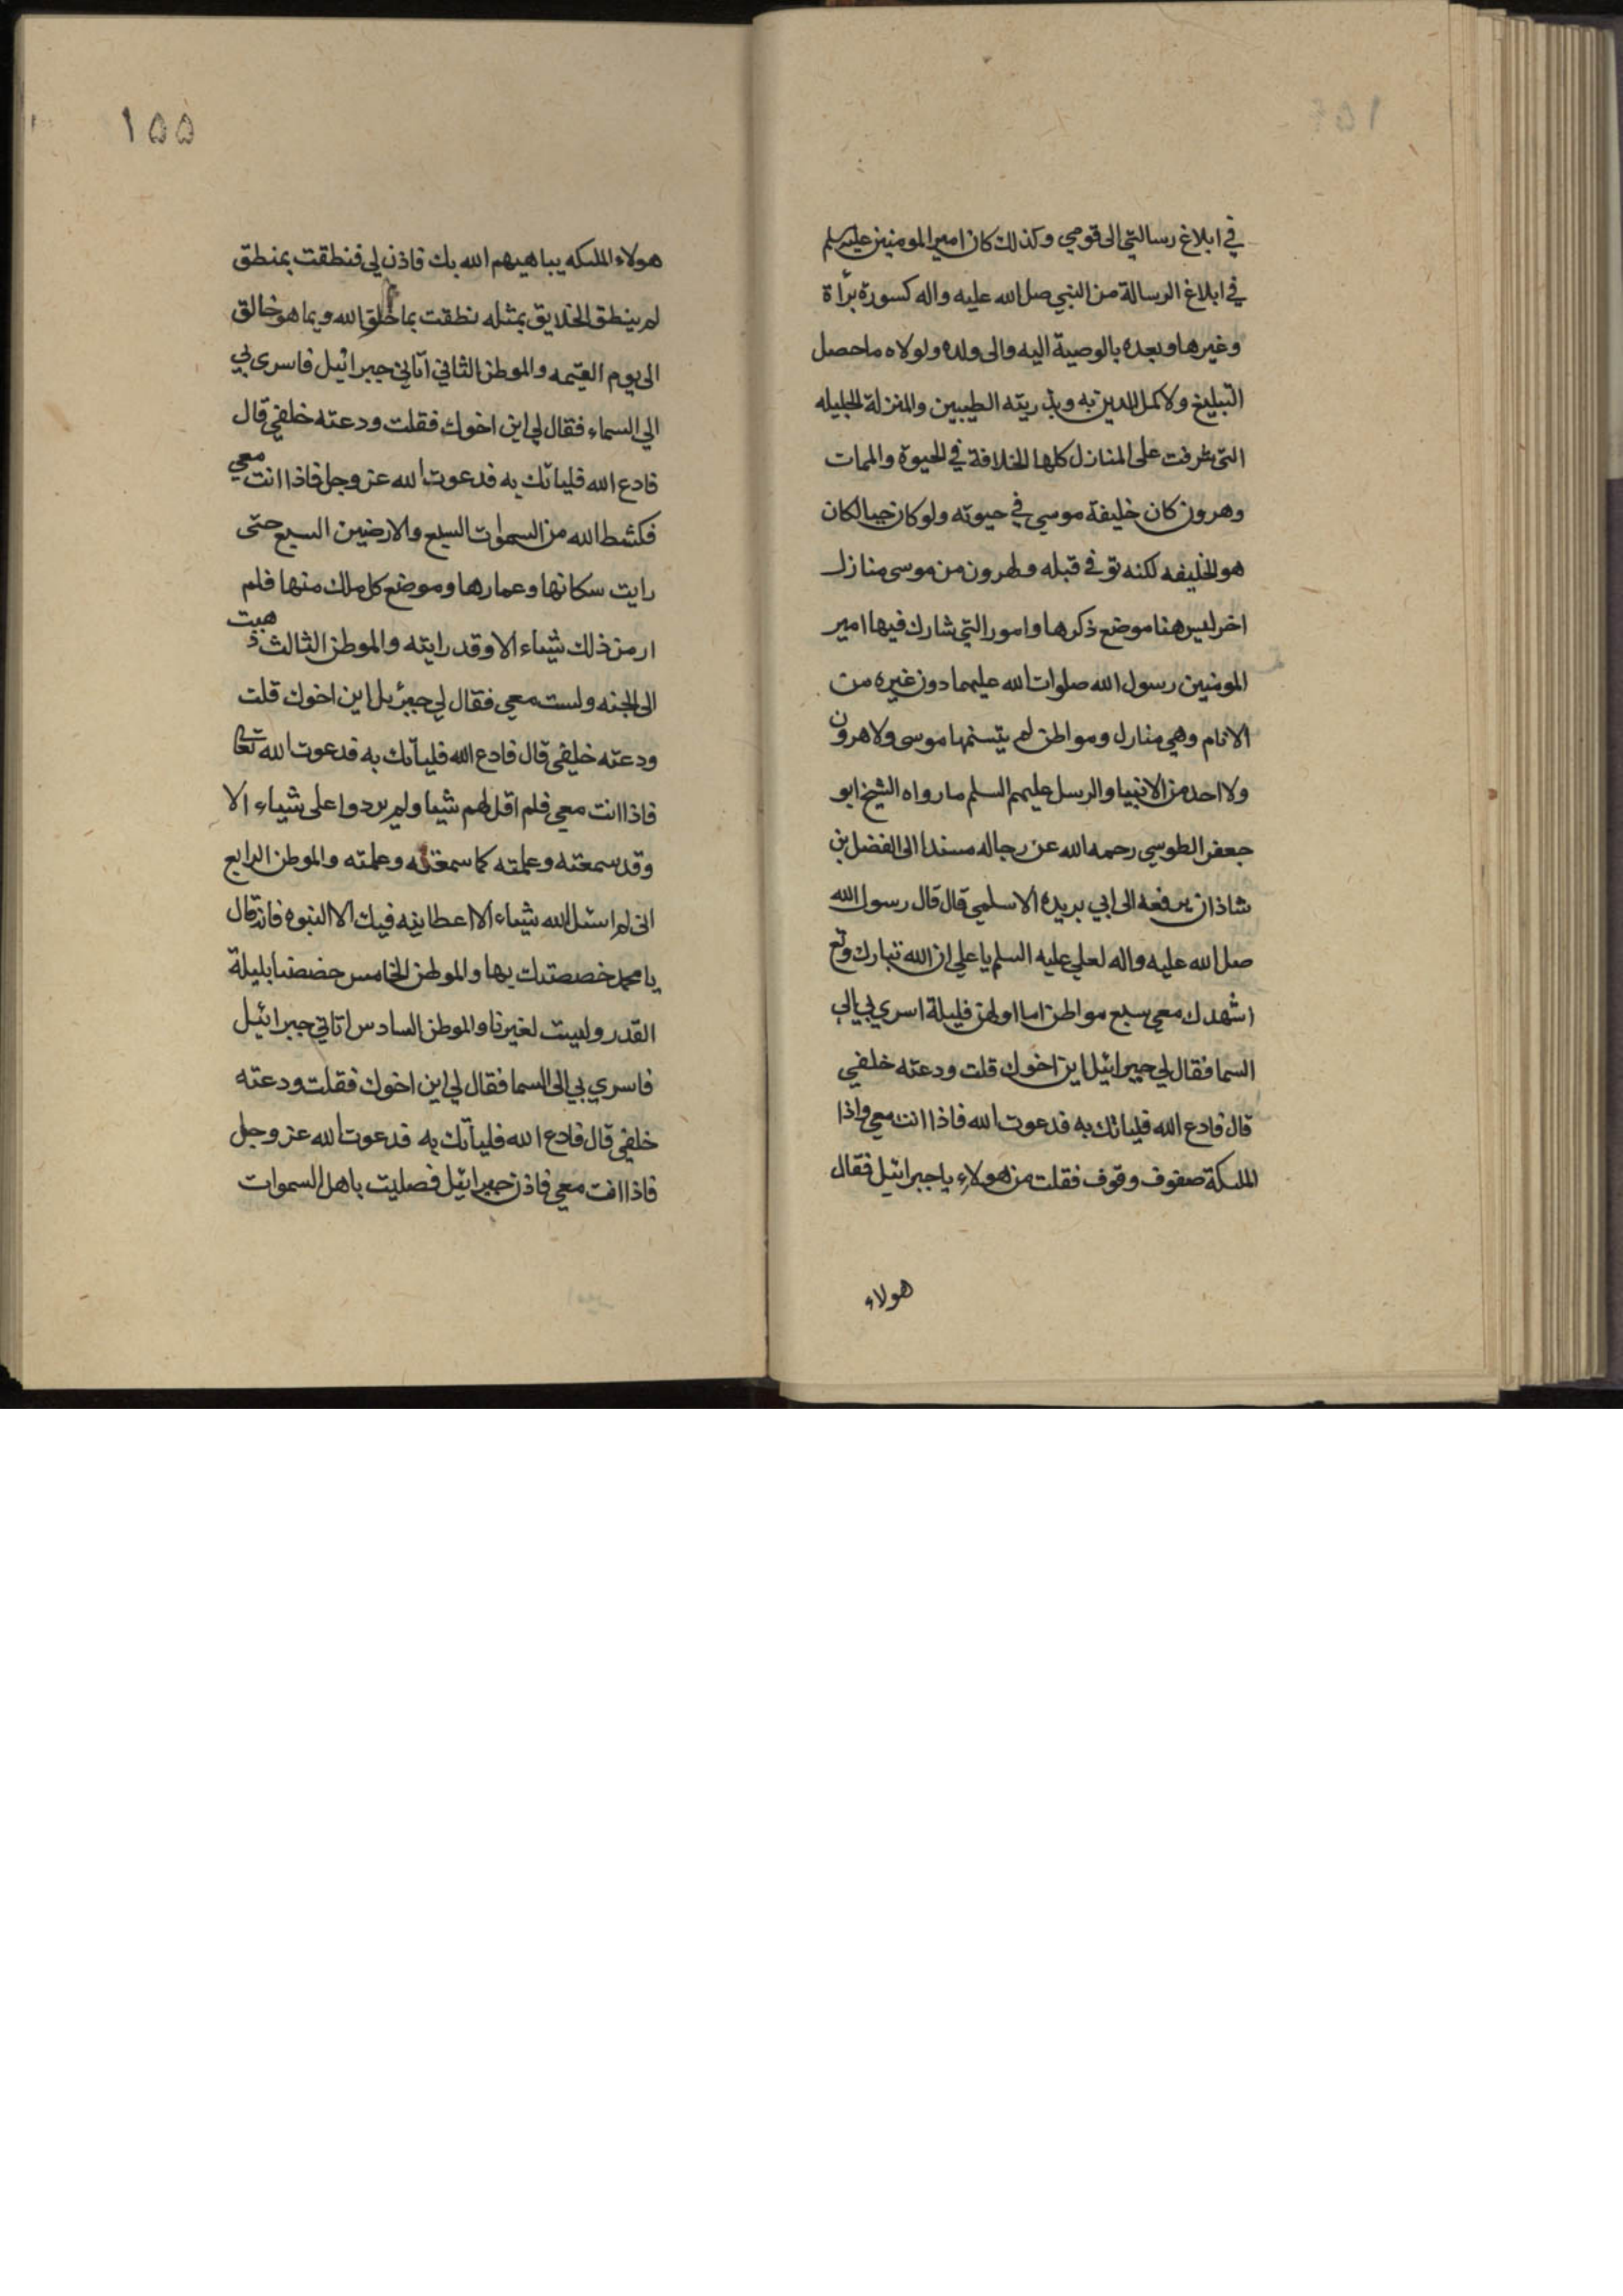 في ابلاغ رسالتي الى قومي وكذلك كان امير المومنين عليه سلم
في ابلاغ الرسالة من النبي صل الله عليه واله كسورة برأة
وغيرها وبعده بالوصية اليه والى ولده ولولاه ما حصل
التبليغ ولا كمل الدين به وبذريته الطيبين والمنزلة الجليله
التي شرفت على المنازل كلها الخلافة في الحيوة والممات
وهرون كان خليفة موسي في حيوته ولو كان حيا لكان
هو الخليفه لكنه توفي قبله ولهرون من موسى منازل
اخر ليس هنا موضع ذكرها وامور التي شارك فيها امير
المومنين رسول الله صلوات الله عليهما دون غيره من
الانام وهي منازل ومواطن لم يتسنمها موسى ولا هرون
ولا احد من الانبيا والرسل عليهم السلم ما رواه الشيخ ابو
جعفر الطوسي رحمه الله عن رجاله مسندا الى الفضل بن
شاذان يرفعه الى ابي بريده الاسلمي قال قال رسول الله
صل الله عليه واله لعلي عليه السلم يا علي ان الله تبارك وتع
اشهدك معي سبع مواطن اما اولهن فليلة اسري بي الي
السما فقال لي جبرائيل اين اخوك قلت ودعته خلفي
قال فادع الله فلياتك به فدعوت الله فاذا انت معي واذا
الملىكة صفوف وقوف فقلت من هولاء يا جبرائيل فقال
هولاء
١٥٥
هولاء الملىكه يباهيهم الله بك فاذن لي فنطقت بمنطق
لم ينطق الخلايق بمثله نطقت بما خلق الله وبما هو خالق
الى يوم القيمه والموطن الثاني اتاني جبرائيل فاسرى بي
الي السماء فقال لي اين اخوك فقلت ودعته خلفي قال
فادع الله فلياتك به فدعوت الله عز وجل فاذا انت معي
فكشط الله من السموات السبع والارضين السبع حتى
رايت سكانها وعمارها وموضع كل ملك منها فلم
ار من ذلك شيىاء الا وقد رايته والموطن الثالث ذهبت
الى الجنه ولست معي فقال لي جبرئيل اين اخوك قلت
ودعته خلفي قال فادع الله فلياتك به فدعوت الله تعا
فاذا انت معي فلم اقل لهم شيا ولم يردوا على شياء الا
وقد سمعته وعلمته كما سمعته وعلمته والموطن الرابع
اني لم اسئل الله شيىاء الا اعطانيه فيك الا النبوه فانه قال
يا محمد خصصتك بها والموطن الخامس خصصنا بليلة
القدر وليست لغيرنا والموطن السادس اتاني جبرائيل
فاسري بي الى السما فقال لي اين اخوك فقلت ودعته
خلفي قال فادع الله فلياتك به فدعوت الله عز وجل
فاذا انت معي فاذن جبرائيل فصليت باهل السموات